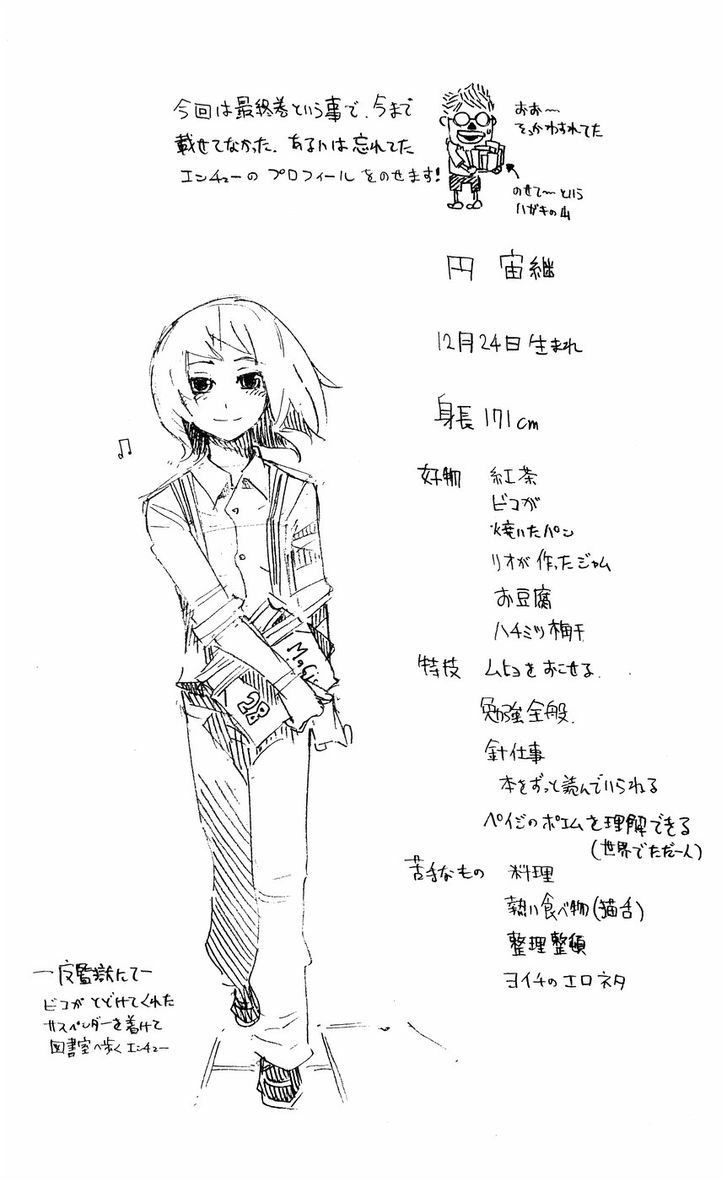 今回は最終巻という事で、今まで
載せてなかった、あるいは忘れてた
エンチューの プロフィール をのせます!
おお〜
そっかわすれてた
のせて〜という
ハガキの山
円 宙継
12月24日生まれ
身長 171cm
好物 紅茶
ビコが
焼いたパン
リオが作ったジャム
お豆腐
ハチミツ梅干
特技 ムヒョをおこせる
勉強全般
針仕事
本をずっと読んでいられる
ペイジのポエムを理解できる
(世界でただ一人)
苦手なもの 料理
熱い食べ物(猫舌)
整理整頓
ヨイチのエロネタ
♫
MaGi
2B
ビコがとどけてくれた
サスペンダーを着けて
図書室へ歩くエンチュー